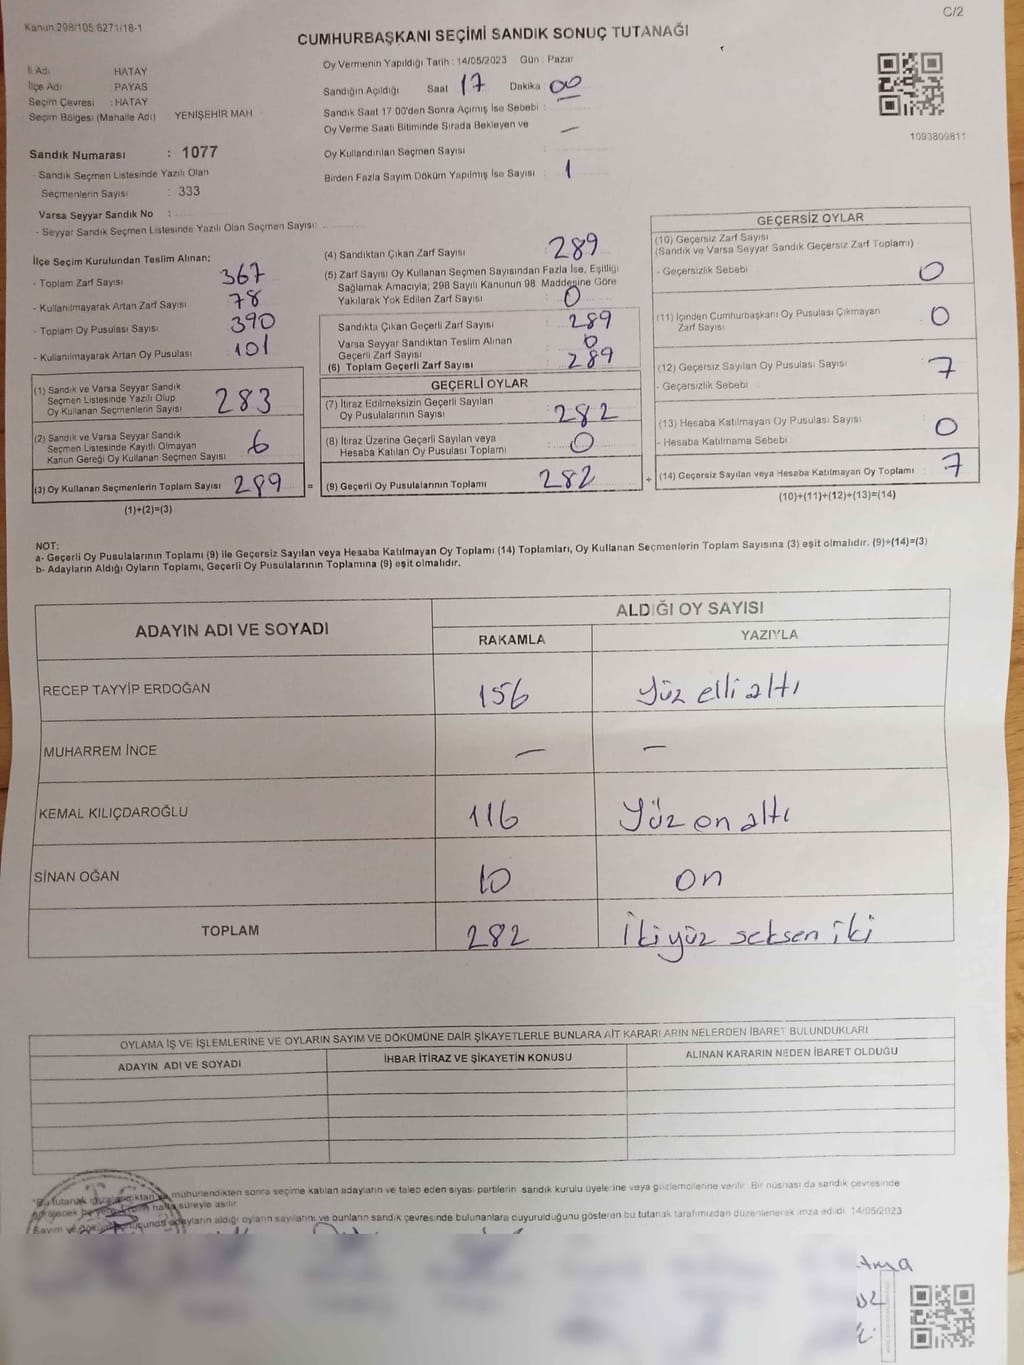 Kanun:298/105 6271/18-1
C/2
CUMHURBAŞKANI SEÇİMİ SANDIK SONUÇ TUTANAĞI
İl Adı HATAY
İlçe Adı PAYAS
Seçim Çevresi : HATAY
Seçim Bölgesi (Mahalle Adı) : YENİŞEHİR MAH
Sandık Numarası : 1077
- Sandık Seçmen Listesinde Yazılı Olan
Seçmenlerin Sayısı : 333
Varsa Seyyar Sandık No :
- Seyyar Sandık Seçmen Listesinde Yazılı Olan Seçmen Sayısı:
Oy Vermenin Yapıldığı Tarih : 14/05/2023 Gün : Pazar
Sandığın Açıldığı Saat 17 Dakika : 00
Sandık Saat 17 00'den Sonra Açılmış İse Sebebi :
Oy Verme Saati Bitiminde Sırada Bekleyen ve —
Oy Kullandırılan Seçmen Sayısı :
Birden Fazla Sayım Döküm Yapılmış İse Sayısı : 1
1093809811
İlçe Seçim Kurulundan Teslim Alınan:
- Toplam Zarf Sayısı : 367
- Kullanılmayarak Artan Zarf Sayısı : 78
- Toplam Oy Pusulası Sayısı : 390
- Kullanılmayarak Artan Oy Pusulası : 101
(1) Sandık ve Varsa Seyyar Sandık
Seçmen Listesinde Yazılı Olup
Oy Kullanan Seçmenlerin Sayısı : 283
(2) Sandık ve Varsa Seyyar Sandık
Seçmen Listesinde Kayıtlı Olmayan
Kanun Gereği Oy Kullanan Seçmen Sayısı : 6
(3) Oy Kullanan Seçmenlerin Toplam Sayısı : 289 =
(1)+(2)=(3)
(4) Sandıktan Çıkan Zarf Sayısı : 289
(5) Zarf Sayısı Oy Kullanan Seçmen Sayısından Fazla İse, Eşitliği
Sağlamak Amacıyla; 298 Sayılı Kanunun 98 Maddesine Göre
Yakılarak Yok Edilen Zarf Sayısı : 0
Sandıkta Çıkan Geçerli Zarf Sayısı : 289
Varsa Seyyar Sandıktan Teslim Alınan
Geçerli Zarf Sayısı : 0
(6) Toplam Geçerli Zarf Sayısı : 289
GEÇERLİ OYLAR
(7) İtiraz Edilmeksizin Geçerli Sayılan
Oy Pusulalarının Sayısı : 282
(8) İtiraz Üzerine Geçerli Sayılan veya
Hesaba Katılan Oy Pusulası Toplamı : 0
(9) Geçerli Oy Pusulalarının Toplamı 282 +
GEÇERSİZ OYLAR
(10) Geçersiz Zarf Sayısı
(Sandık ve Varsa Seyyar Sandık Geçersiz Zarf Toplamı)
- Geçersizlik Sebebi : 0
(11) İçinden Cumhurbaşkanı Oy Pusulası Çıkmayan
Zarf Sayısı : 0
(12) Geçersiz Sayılan Oy Pusulası Sayısı : 7
- Geçersizlik Sebebi :
(13) Hesaba Katılmayan Oy Pusulası Sayısı : 0
- Hesaba Katılmama Sebebi :
(14) Geçersiz Sayılan veya Hesaba Katılmayan Oy Toplamı : 7
(10)+(11)+(12)+(13)=(14)
NOT:
a- Geçerli Oy Pusulalarının Toplamı (9) ile Geçersiz Sayılan veya Hesaba Katılmayan Oy Toplamı (14) Toplamları, Oy Kullanan Secmenlerin Toplam Sayısına (3) eşit olmalıdır. (9)+(14)=(3)
b- Adayların Aldığı Oyların Toplamı, Geçerli Oy Pusulalarının Toplamına (9) eşit olmalıdır.
ADAYIN ADI VE SOYADI
ALDIĞI OY SAYISI
RAKAMLA YAZIYLA
RECEP TAYYİP ERDOĞAN 156 Yüz elli altı
MUHARREM İNCE — —
KEMAL KILIÇDAROĞLU 116 Yüz on altı
SİNAN OĞAN 10 on
TOPLAM 282 İki yüz seksen iki
OYLAMA İŞ VE İŞLEMLERİNE VE OYLARIN SAYIM VE DÖKÜMÜNE DAİR ŞİKAYETLERLE BUNLARA AİT KARARLARIN NELERDEN İBARET BULUNDUKLARI
ADAYIN ADI VE SOYADI İHBAR İTİRAZ VE ŞİKAYETİN KONUSU ALINAN KARARIN NEDEN İBARET OLDUĞU
*Bu tutanak mühürlendikten sonra seçime katılan adayların ve talep eden siyasi partilerin sandık kurulu üyelerine veya gözlemcilerine verilir. Bir nüshası da sandık çevresinde
hafta süreyle asılır
Sayım ve adayların aldığı oyların sayılarını ve bunların sandık çevresinde bulunanlara duyurulduğunu gösteren bu tutanak tarafımızdan düzenlenerek imza edildi 14/05/2023